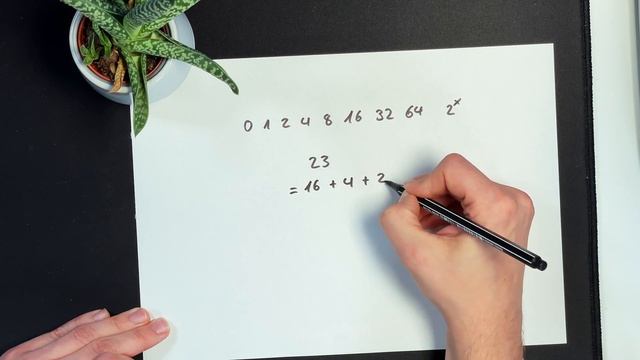 0 1 2 4 8 16 32 64 2ˣ
23
= 16 + 4 + 2